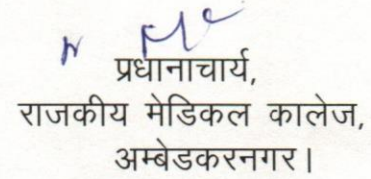 प्रधानाचार्य,
राजकीय मेडिकल कालेज,
अम्बेडकरनगर।